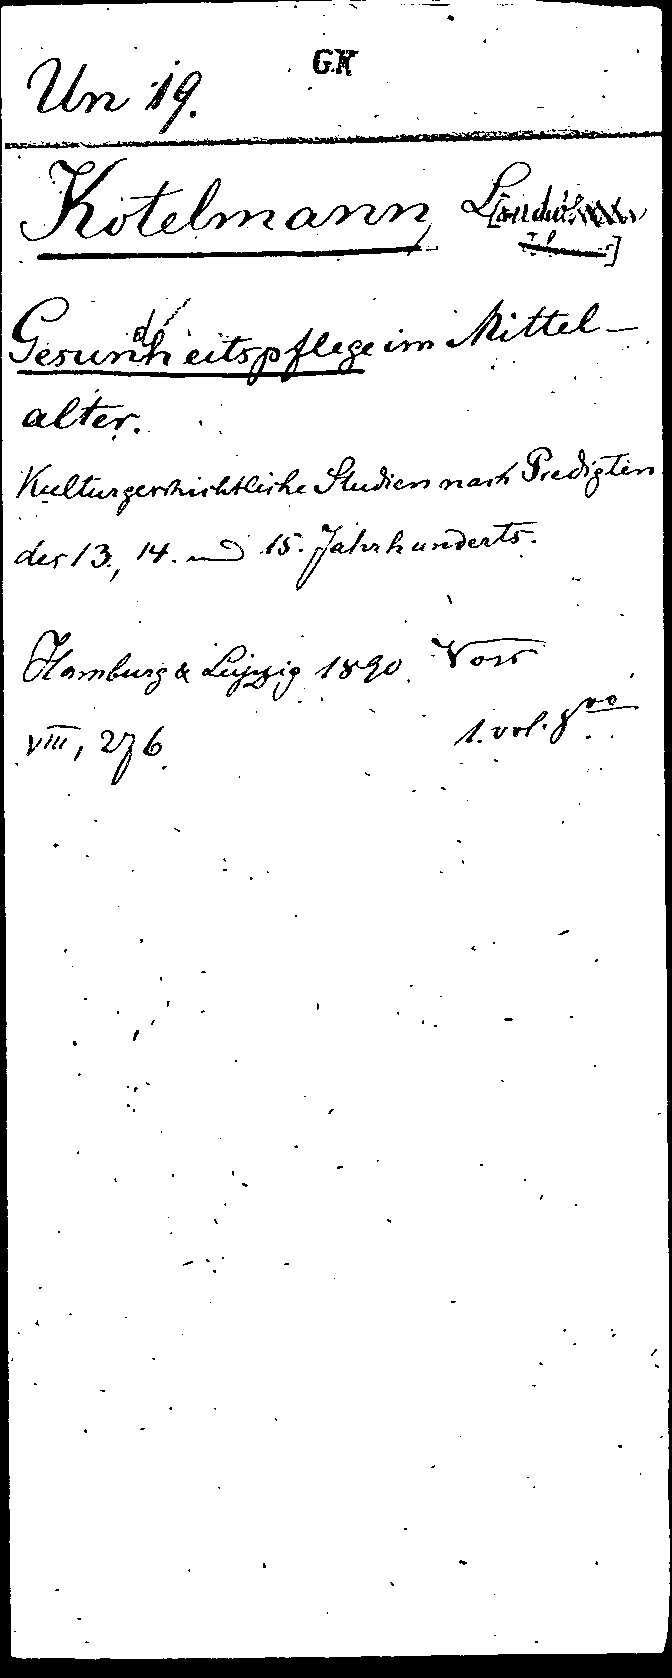 GK
Un 19.
Kotelmann, L
Gesundheitspflege im Mittel-
alter.
Kulturgeschichtliche Studien nach Predigten
des 13., 14. und 15. Jahrhunderts.
Hamburg & Leipzig 1890. Voss
VIII, 276. 1. vol. 8vo